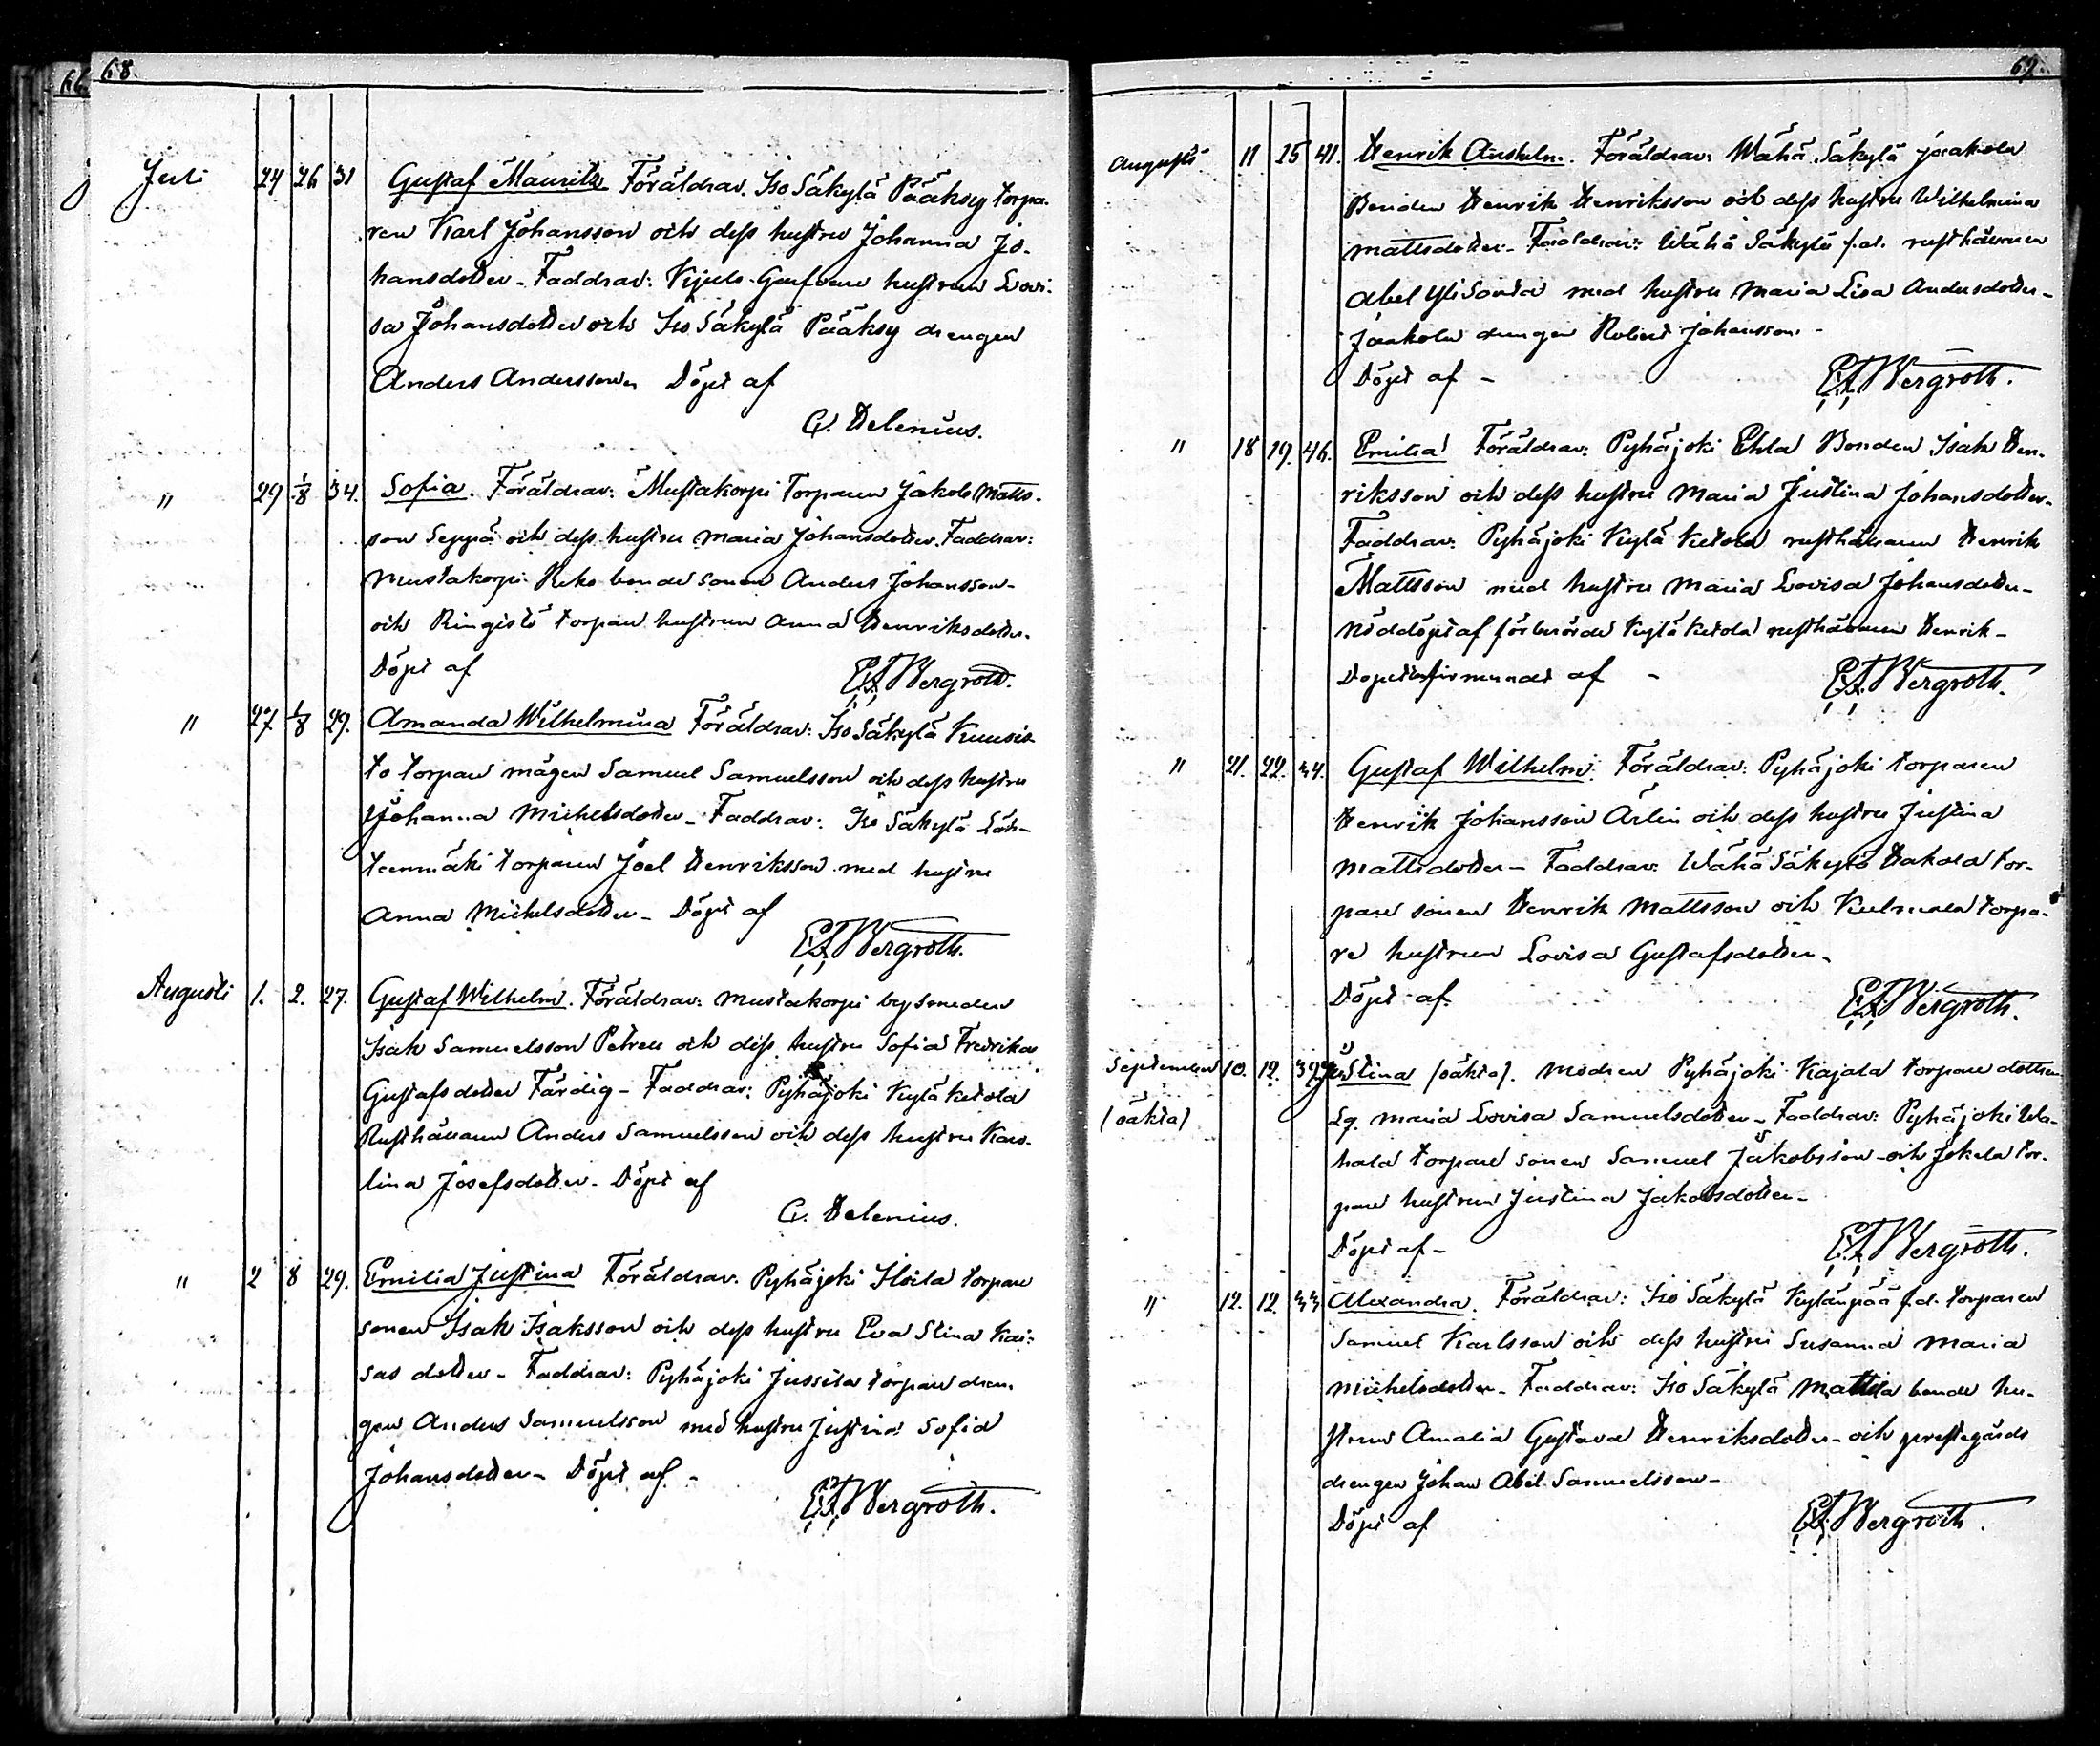 66 68.
Juli 24 26 31 Gustaf Maurits Föräldrar. Iso Säkylä Pääksy torpa-
ren Karl Johansson och dess hustru Johanna Jo-
hansdotter - Faddrar: hustrun Lovi-
sa Johansdotter och Iso Säkylä Pääksy drengen
Anders Andersson Döpt af
C. Helenius.
" 29 1/8 34. Sofia. Föräldrar: Mustakorpi Torparen Jakob Matts-
son Seppä och dess hustru Maria Johansdotter. Faddrar:
Mustakorpi bonde sonen Anders Johansson -
och Ringistö torpare hustrun Anna Henriksdotter.
Döpt af E.F. Bergroth.
" 27 1/8 29. Amanda Wilhelmina Föräldrar: Iso Säkylä Kuusis-
to torpare mågen Samuel Samuelsson och dess hustru
Johanna Michelsdotter - Faddrar: Iso Säkylä Läh-
teenmäki torparen Joel Henriksson med hustru
Anna Michelsdotter - Döpt af
E.F. Bergroth.
Augusti 1. 2. 27. Gustaf Wilhelm. Föräldrar: Mustakorpi bysmeden
Isak Samuelsson Petrell och dess hustru Sofia Fredrika
Gustafsdotter Färdig - Faddrar: Pyhäjoki Kylä Ketola
Rusthållaren Anders Samuelsson och dess hustru Karo-
lina Josefsdotter - Döpt af
C. Helenius.
" 2 8 29. Emilia Justina Föräldrar. Pyhäjoki torpare
sonen Isak Isaksson och dess hustru Eva Stina Kai-
sas dotter - Faddrar: Pyhäjoki Jussila torpare dren-
gen Anders Samuelsson med hustru Justina Sofia
Johansdotter - Döpt af -
E.F. Bergroth.
69.
Augusti 11 15 41. Henrik Anshelm. Föräldrar: Wähä Säkylä Jaakola
Bonden Henrik Henriksson och dess hustru Wilhelmina
Mattsdotter - Faddrar: Wähä Säkylä f.d. rusthållaren
Abel Yli Sonta med hustru Maria Lisa Andersdotter -
Jaakola drengen Robert Johansson -
Döpt af - E.F. Bergroth.
" 18 19. 46. Emilia Föräldrar: Pyhäjoki Bonden Isak Hen-
riksson och dess hustru Maria Justina Johansdotter -
Faddrar: Pyhäjoki Kylä Ketola rusthållaren Henrik
Mattsson med hustru Maria Lovisa Johansdotter -
Nöddöpt af förberörde Kylä Ketola rusthållaren Henrik -
Dopet af - E.F. Bergroth.
" 21. 22. 34. Gustaf Wilhelm. Föräldrar: Pyhäjoki torparen
Henrik Johansson Ärlin och dess hustru Justina
Mattsdotter - Faddrar: Wähä Säkylä Hakala tor-
pare sonen Henrik Mattsson och Kulmala torpa-
re hustrun Lovisa Gustafsdotter -
Döpt af. E.F. Bergroth.
September 10. 12. Justina (oäkta). Modren Pyhäjoki Kajala torpare dottren
(oäkta) Lg. Maria Lovisa Samuelsdotter - Faddrar: Pyhäjoki Ula-
hala torpare sonen Samuel Jakobsson - och Jokela tor-
pare hustrun Justina Jakobsdotter -
Döpt af - E.F. Bergroth.
" 12. 12 33 Alexandra. Föräldrar: Iso Säkylä Kylänpää f.d. torparen
Samuel Karlsson och dess hustru Susanna Maria
Michelsdotter - Faddrar: Iso Säkylä Mattila bonde hu-
strun Amalia Gustava Henriksdotter - och prestegårds
drengen Johan Abel Samuelsson -
Döpt af E.F. Bergroth.